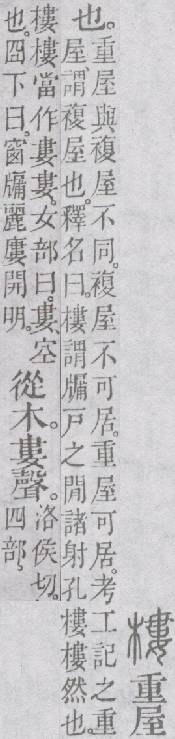 樓重屋
也。
重屋與複屋不同。複屋不可居。重屋可居。考工記之重
屋、謂複屋也。釋名曰。樓謂牖戶之閒諸射孔樓樓然也。
樓樓當作婁婁。女部曰。婁、空
也。囧下曰。窗牖麗廔開明。
從木。婁聲。
洛侯切。
四部。